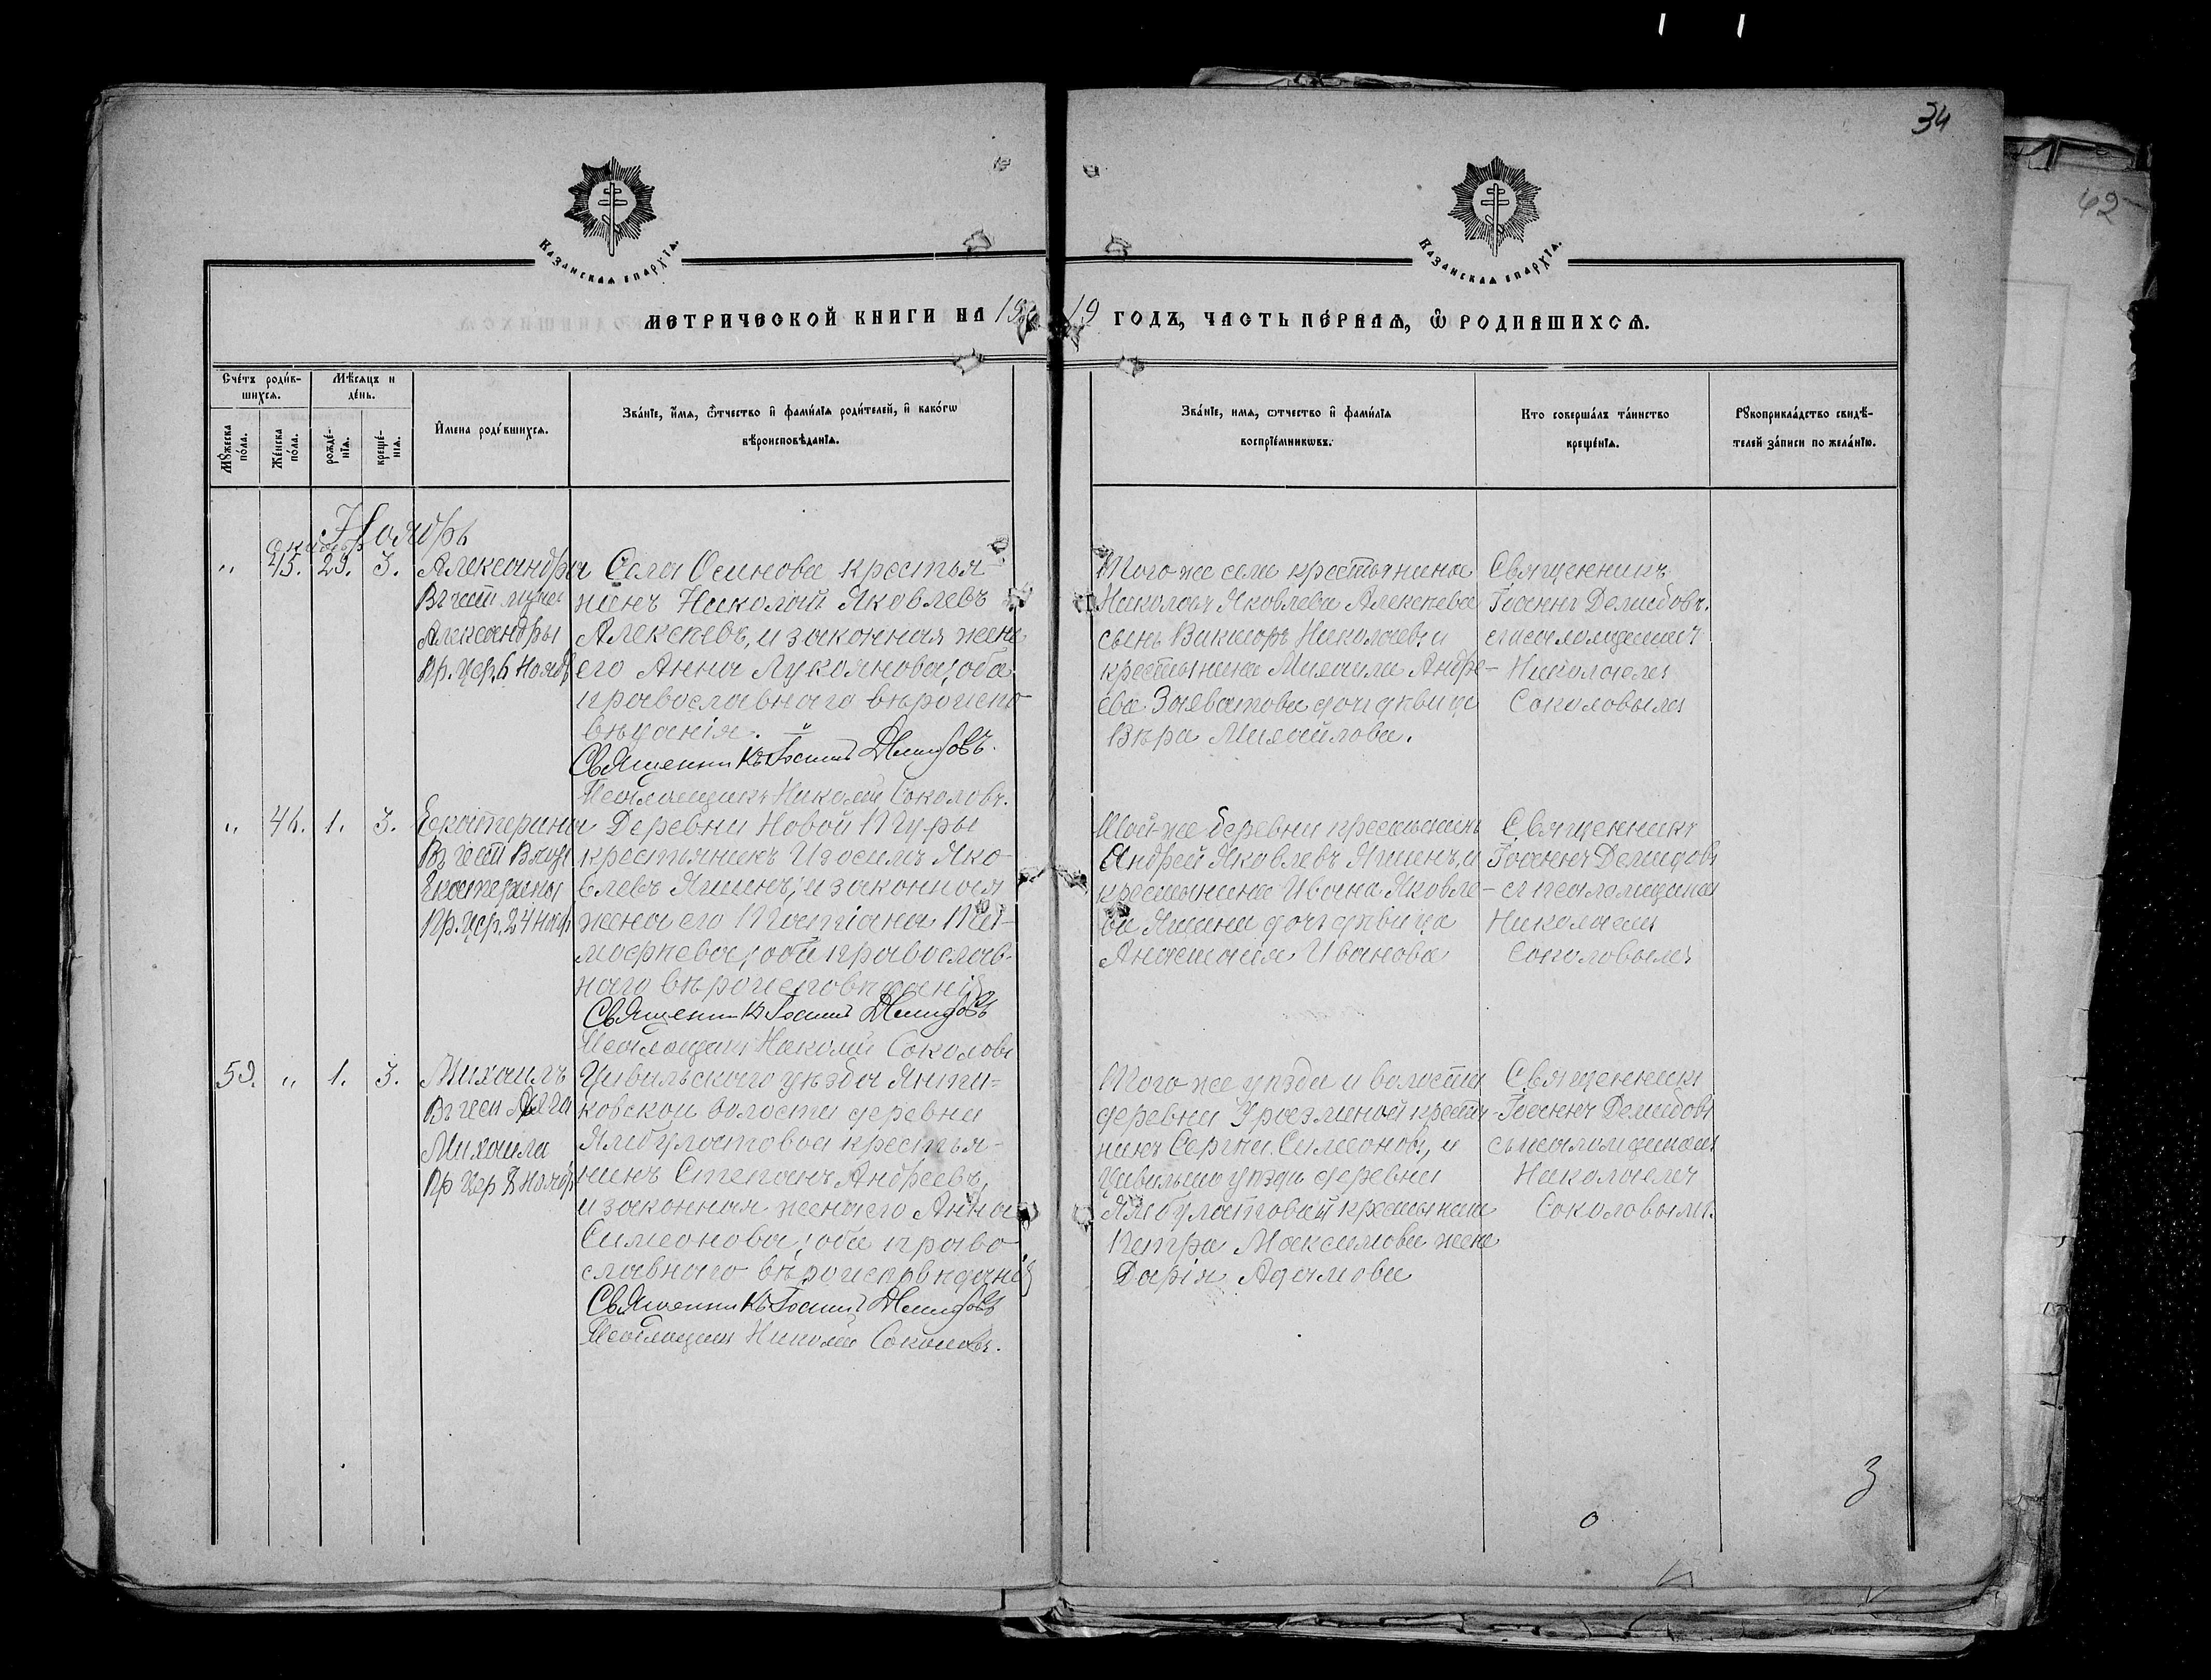 34
62
Казанская епархія.
Казанская епархія.
Метрической книги на 19
19 годъ, часть первая, ѿ родившихся.
Счетъ родив-
шихся.
Мѣсяцъ и
день.
Мꙋжеска
пола.
Женска
пола.
рожде-
нія.
креще-
нія.
Имена родившихся.
Званіе, имя, ѿтчество и фамилія родителей, и какогѡ
вѣроисповѣданія.
Званіе, имя, ѿтчество и фамилія
воспріемникѡвъ.
Кто совершалъ таинство
крещенія.
Рꙋкоприкладство свидѣ-
телей записи по желанію.
Ноябрь
октябр
" 45. 29. 3. Александра
Въ чест мучен
Александры
Пр. Цер. 6 Нояб
Села Осинова крестья-
нинъ Николай Яковлевъ
Алексѣевъ, и законная жена
его Анна Лукоянова; оба
православнаго вѣроиспо-
вѣданія.
Священникъ Іоаннъ Демидовъ.
Псаломщикъ Николай Соколовъ.
Того же села крестьянина
Николая Яковлева Алексѣева
сынъ Викторъ Николаевъ и
крестьянина Михаила Андре-
ева дочь дѣвица
Вѣра Михайлова.
Священникъ
Іоаннъ Демидовъ.
съ псаломщикомъ
Николаемъ
Соколовымъ
" 46. 1. 3. Екатерина
Въ чест Влмуч
Екатерины
Пр. Цер. 24 нояб
Деревни Новой Туры
крестьянинъ Яко-
влевъ Яшинъ, и законная
жена его Татіана Ти-
мофѣева; оба православ-
наго вѣроисповѣданія
Священникъ Іоаннъ Демидовъ
Псаломщикъ Николай Соколовъ
Той-же деревни крестьянинъ
Андрей Яковлевъ Яшинъ, и
крестьянина Ивана Яковле-
ва Яшина дочь дѣвица
Анастасія Иванова
Священникъ
Іоаннъ Демидовъ
съ псаломщикомъ
Николаемъ
Соколовымъ
59. " 1. 3. Михаилъ
Въ чест Арха
Михаила
Пр Цер 8 Нояб
Цивильскаго уѣзда Янти-
ковской волости деревни
Ямбулатовой крестья-
нинъ Степанъ Андреевъ,
и законная жена его Анна
Симеонова; оба право-
славнаго вѣроисповѣданія
Священникъ Іоаннъ Демидовъ
Псаломщикъ Николай Соколовъ.
Того же уѣзда и волости
деревни крестья-
нинъ Сергѣй Симеоновъ, и
Цивильска уѣзда деревни
Ямбулатовой крестьянина
Петра Максимова жена
Дарія Адамова
Священникъ
Іоаннъ Демидовъ
съ псаломщикомъ
Николаемъ
Соколовымъ.
3